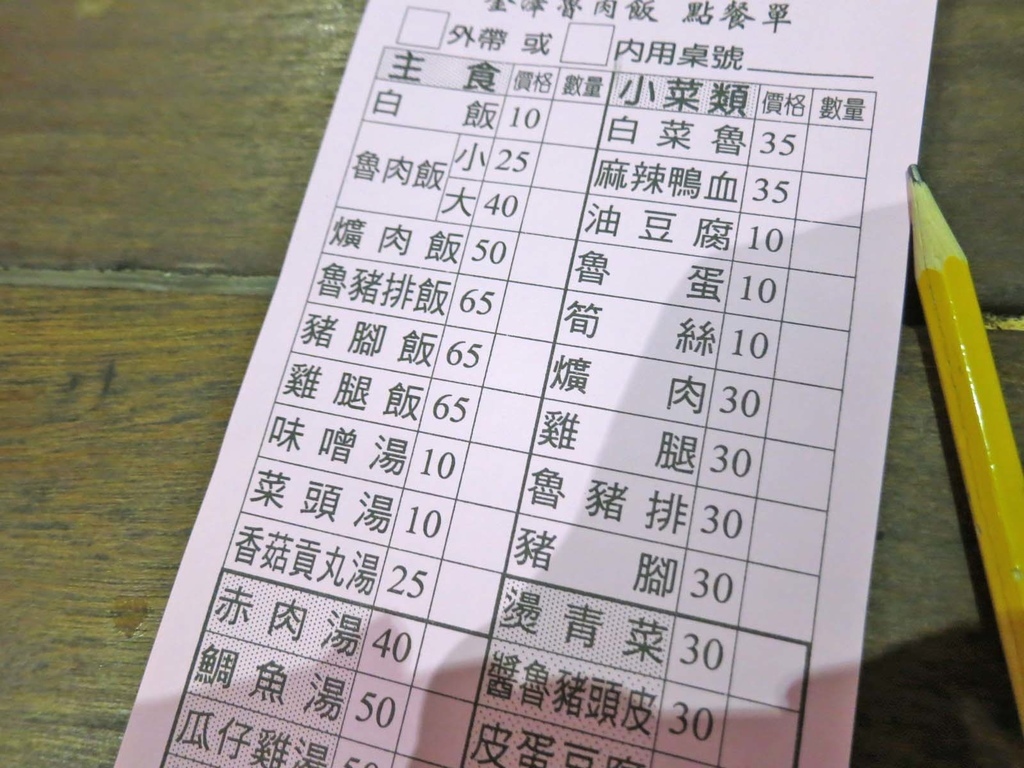 魯肉飯 點餐單
外帶 或 內用桌號
主食 價格 數量 小菜類 價格 數量
白飯 10 白菜魯 35
魯肉飯 小 25 麻辣鴨血 35
大 40 油豆腐 10
爌肉飯 50 魯蛋 10
魯豬排飯 65 筍絲 10
豬腳飯 65 爌肉 30
雞腿飯 65 雞腿 30
味噌湯 10 魯豬排 30
菜頭湯 10 豬腳 30
香菇貢丸湯 25 燙青菜 30
赤肉湯 40 醬魯豬頭皮 30
鯛魚湯 50 皮蛋豆腐
瓜仔雞湯 50